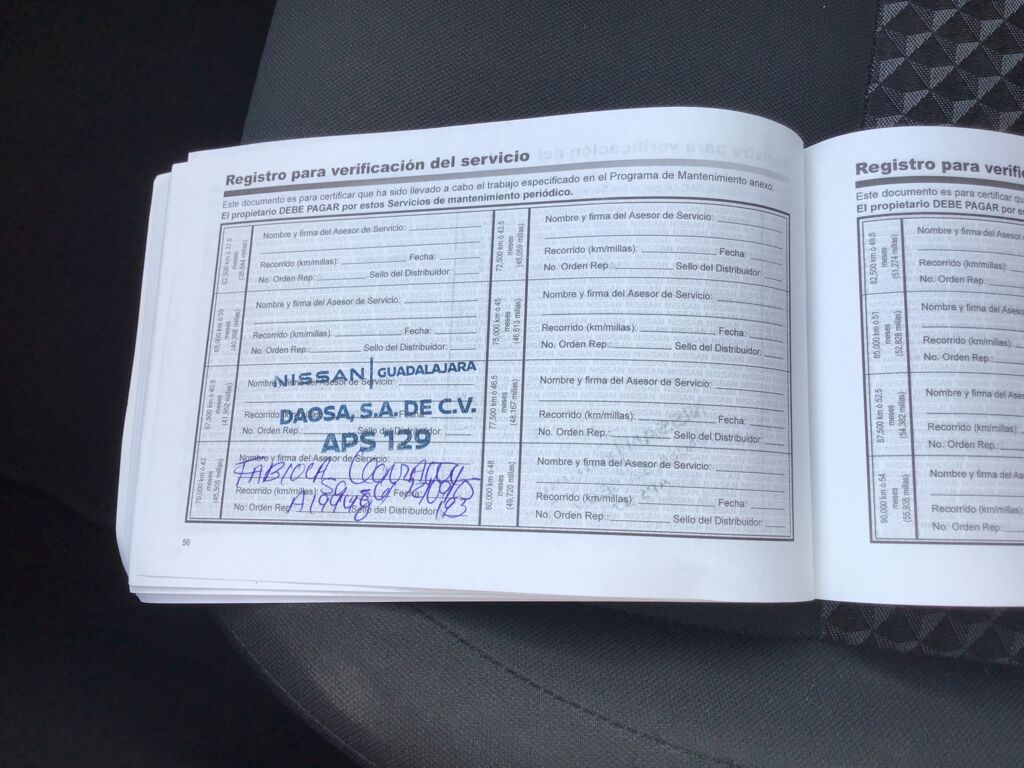 Registro para verificación del servicio
Este documento es para certificar que ha sido llevado a cabo el trabajo especificado en el Programa de Mantenimiento anexo.
El propietario DEBE PAGAR por estos Servicios de mantenimiento periódico.
62,500 km ó 37.5
meses
(38,844 millas)
Nombre y firma del Asesor de Servicio:
Recorrido (km/millas): Fecha:
No. Orden Rep.: Sello del Distribuidor:
65,000 km ó 39
meses
(40,398 millas)
Nombre y firma del Asesor de Servicio:
Recorrido (km/millas): Fecha:
No. Orden Rep.: Sello del Distribuidor:
67,500 km ó 40.5
meses
(41,952 millas)
Nombre y firma del Asesor de Servicio:
Recorrido (km/millas): Fecha:
No. Orden Rep.: Sello del Distribuidor:
NISSAN GUADALAJARA
DAOSA, S.A. DE C.V.
APS 129
70,000 km ó 42
meses
(43,506 millas)
Nombre y firma del Asesor de Servicio:
FABIOLA
Recorrido (km/millas): Fecha:
No. Orden Rep.: Sello del Distribuidor:
72,500 km ó 43.5
meses
(45,059 millas)
Nombre y firma del Asesor de Servicio:
Recorrido (km/millas): Fecha:
No. Orden Rep.: Sello del Distribuidor:
75,000 km ó 45
meses
(46,613 millas)
Nombre y firma del Asesor de Servicio:
Recorrido (km/millas): Fecha:
No. Orden Rep.: Sello del Distribuidor:
77,500 km ó 46.5
meses
(48,167 millas)
Nombre y firma del Asesor de Servicio:
Recorrido (km/millas): Fecha:
No. Orden Rep.: Sello del Distribuidor:
80,000 km ó 48
meses
(49,720 millas)
Nombre y firma del Asesor de Servicio:
Recorrido (km/millas): Fecha:
No. Orden Rep.: Sello del Distribuidor:
56
Registro para verifi
Este documento es para certificar
El propietario DEBE PAGAR por
82,500 km ó 49.5
meses
(51,274 millas)
Nombre y firma del Asesor
Recorrido (km/millas):
No. Orden Rep.:
85,000 km ó 51
meses
(52,828 millas)
Nombre y firma del Asesor
Recorrido (km/millas):
No. Orden Rep.:
87,500 km ó 52.5
meses
(54,382 millas)
Nombre y firma del Asesor
Recorrido (km/millas):
No. Orden Rep.:
90,000 km ó 54
meses
(55,935 millas)
Nombre y firma del Aseso
Recorrido (km/millas):
No. Orden Rep.: